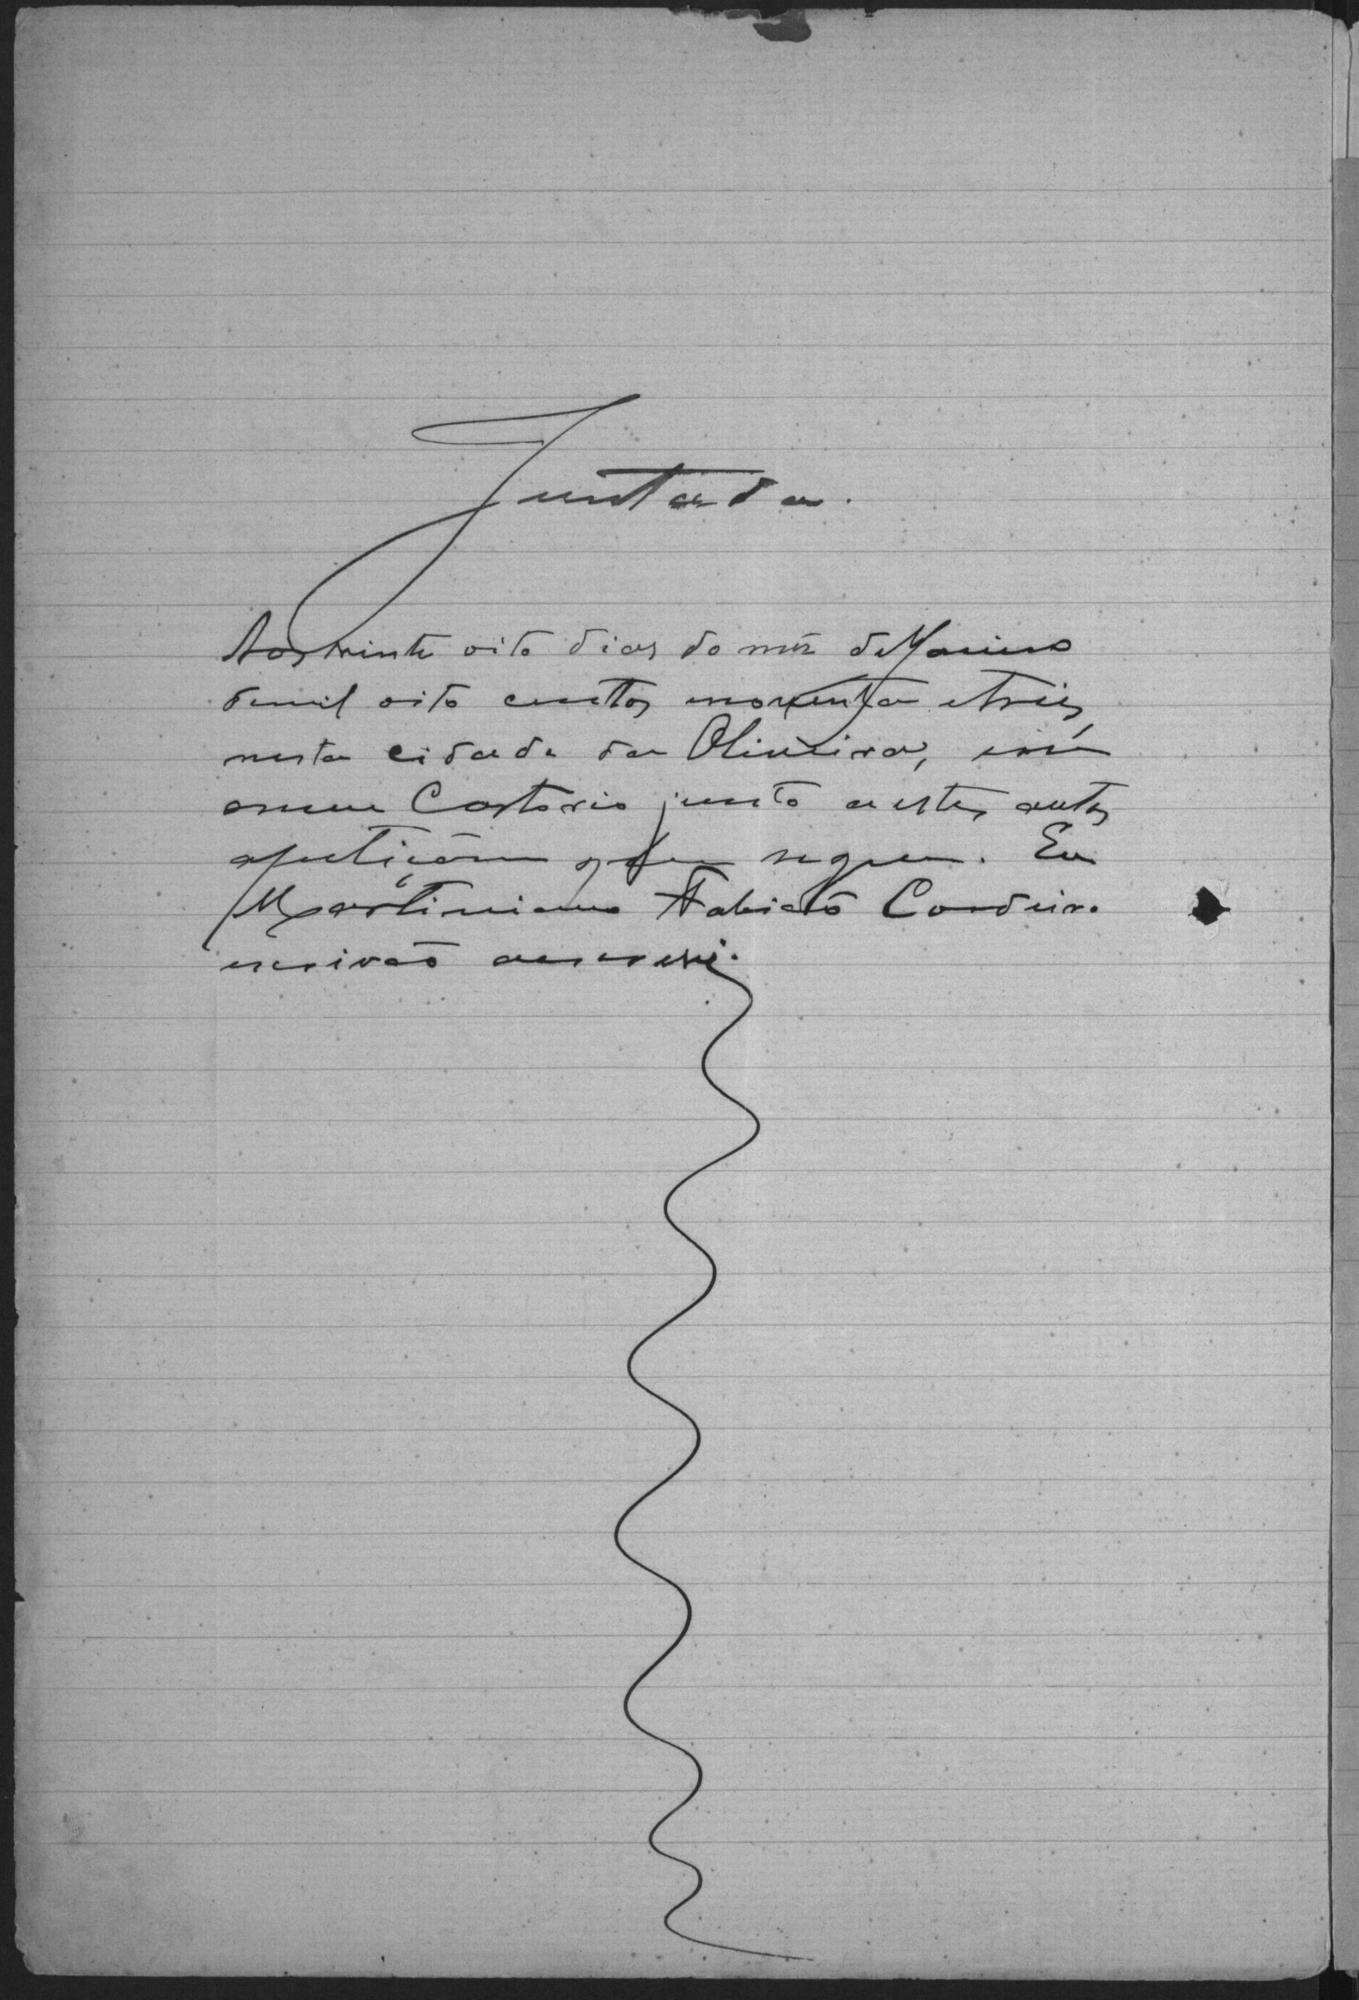 Juntada.
Aos vinte oito dias do mez de
de mil oito centos noventa e tres,
nesta cidade da Oliveira, em
o meu Cartorio junto a estes autos
a peticão que segue. Eu
Martiniano Fabião Cordeiro
escrivão a escrevi.